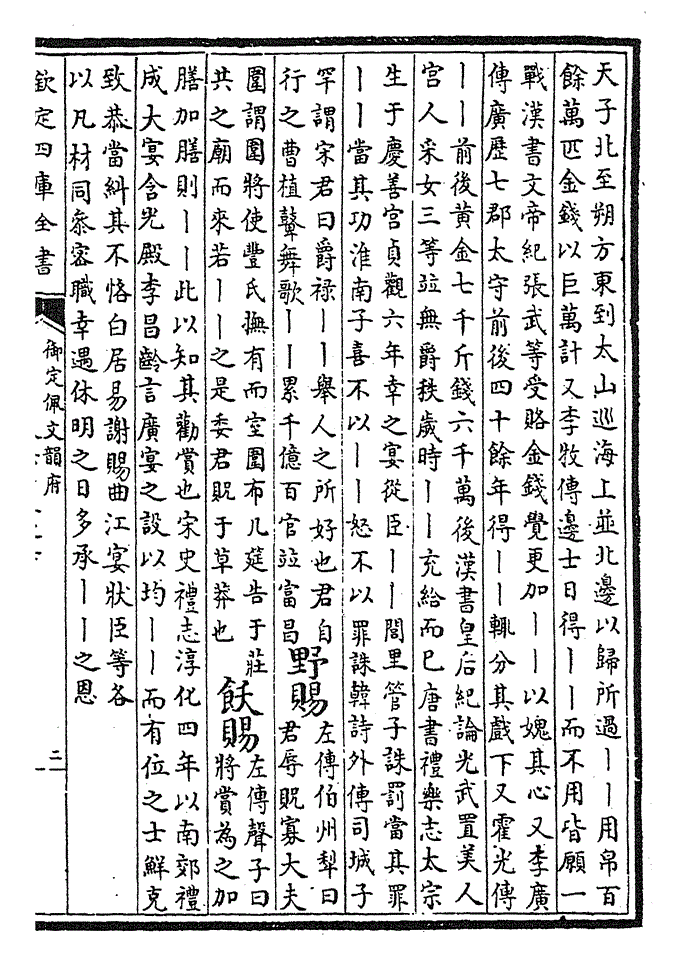 天子北至朔方東到太山巡海上並北邊以歸所過丨丨用帛百
餘萬匹金錢以巨萬計又李牧傳邊士日得丨丨而不用皆願一
戰漢書文帝紀張武等受賂金錢覺更加丨丨以媿其心又李廣
傳廣歴七郡太守前後四十餘年得丨丨輒分其戲下又霍光傳
丨丨前後黄金七千斤錢六千萬後漢書皇后紀論光武置美人
宫人采女三等竝無爵秩歲時丨丨充給而已唐書禮樂志太宗
生于慶善宫貞觀六年幸之宴從臣丨丨閭里管子誅罰當其罪
丨丨當其功淮南子喜不以丨丨怒不以罪誅韓詩外傳司城子
罕謂宋君曰爵禄丨丨舉人之所好也君自
行之曹植鼙舞歌丨丨累千億百官竝富昌
野賜
左傳伯州犁曰
君辱貺寡大夫
圍謂圍將使豐氏撫有而室圍布几筵告于莊
共之廟而來若丨丨之是委君貺于草莽也
飫賜
左傳聲子曰
將賞為之加
膳加膳則丨丨此以知其勸賞也宋史禮志淳化四年以南郊禮
成大宴含光殿李昌齡言廣宴之設以均丨丨而有位之士鮮克
致恭當糾其不恪白居易謝賜曲江宴狀臣等各
以凡材同叅密職幸遇休明之日多承丨丨之恩
欽定四庫全書
御定佩文韻府